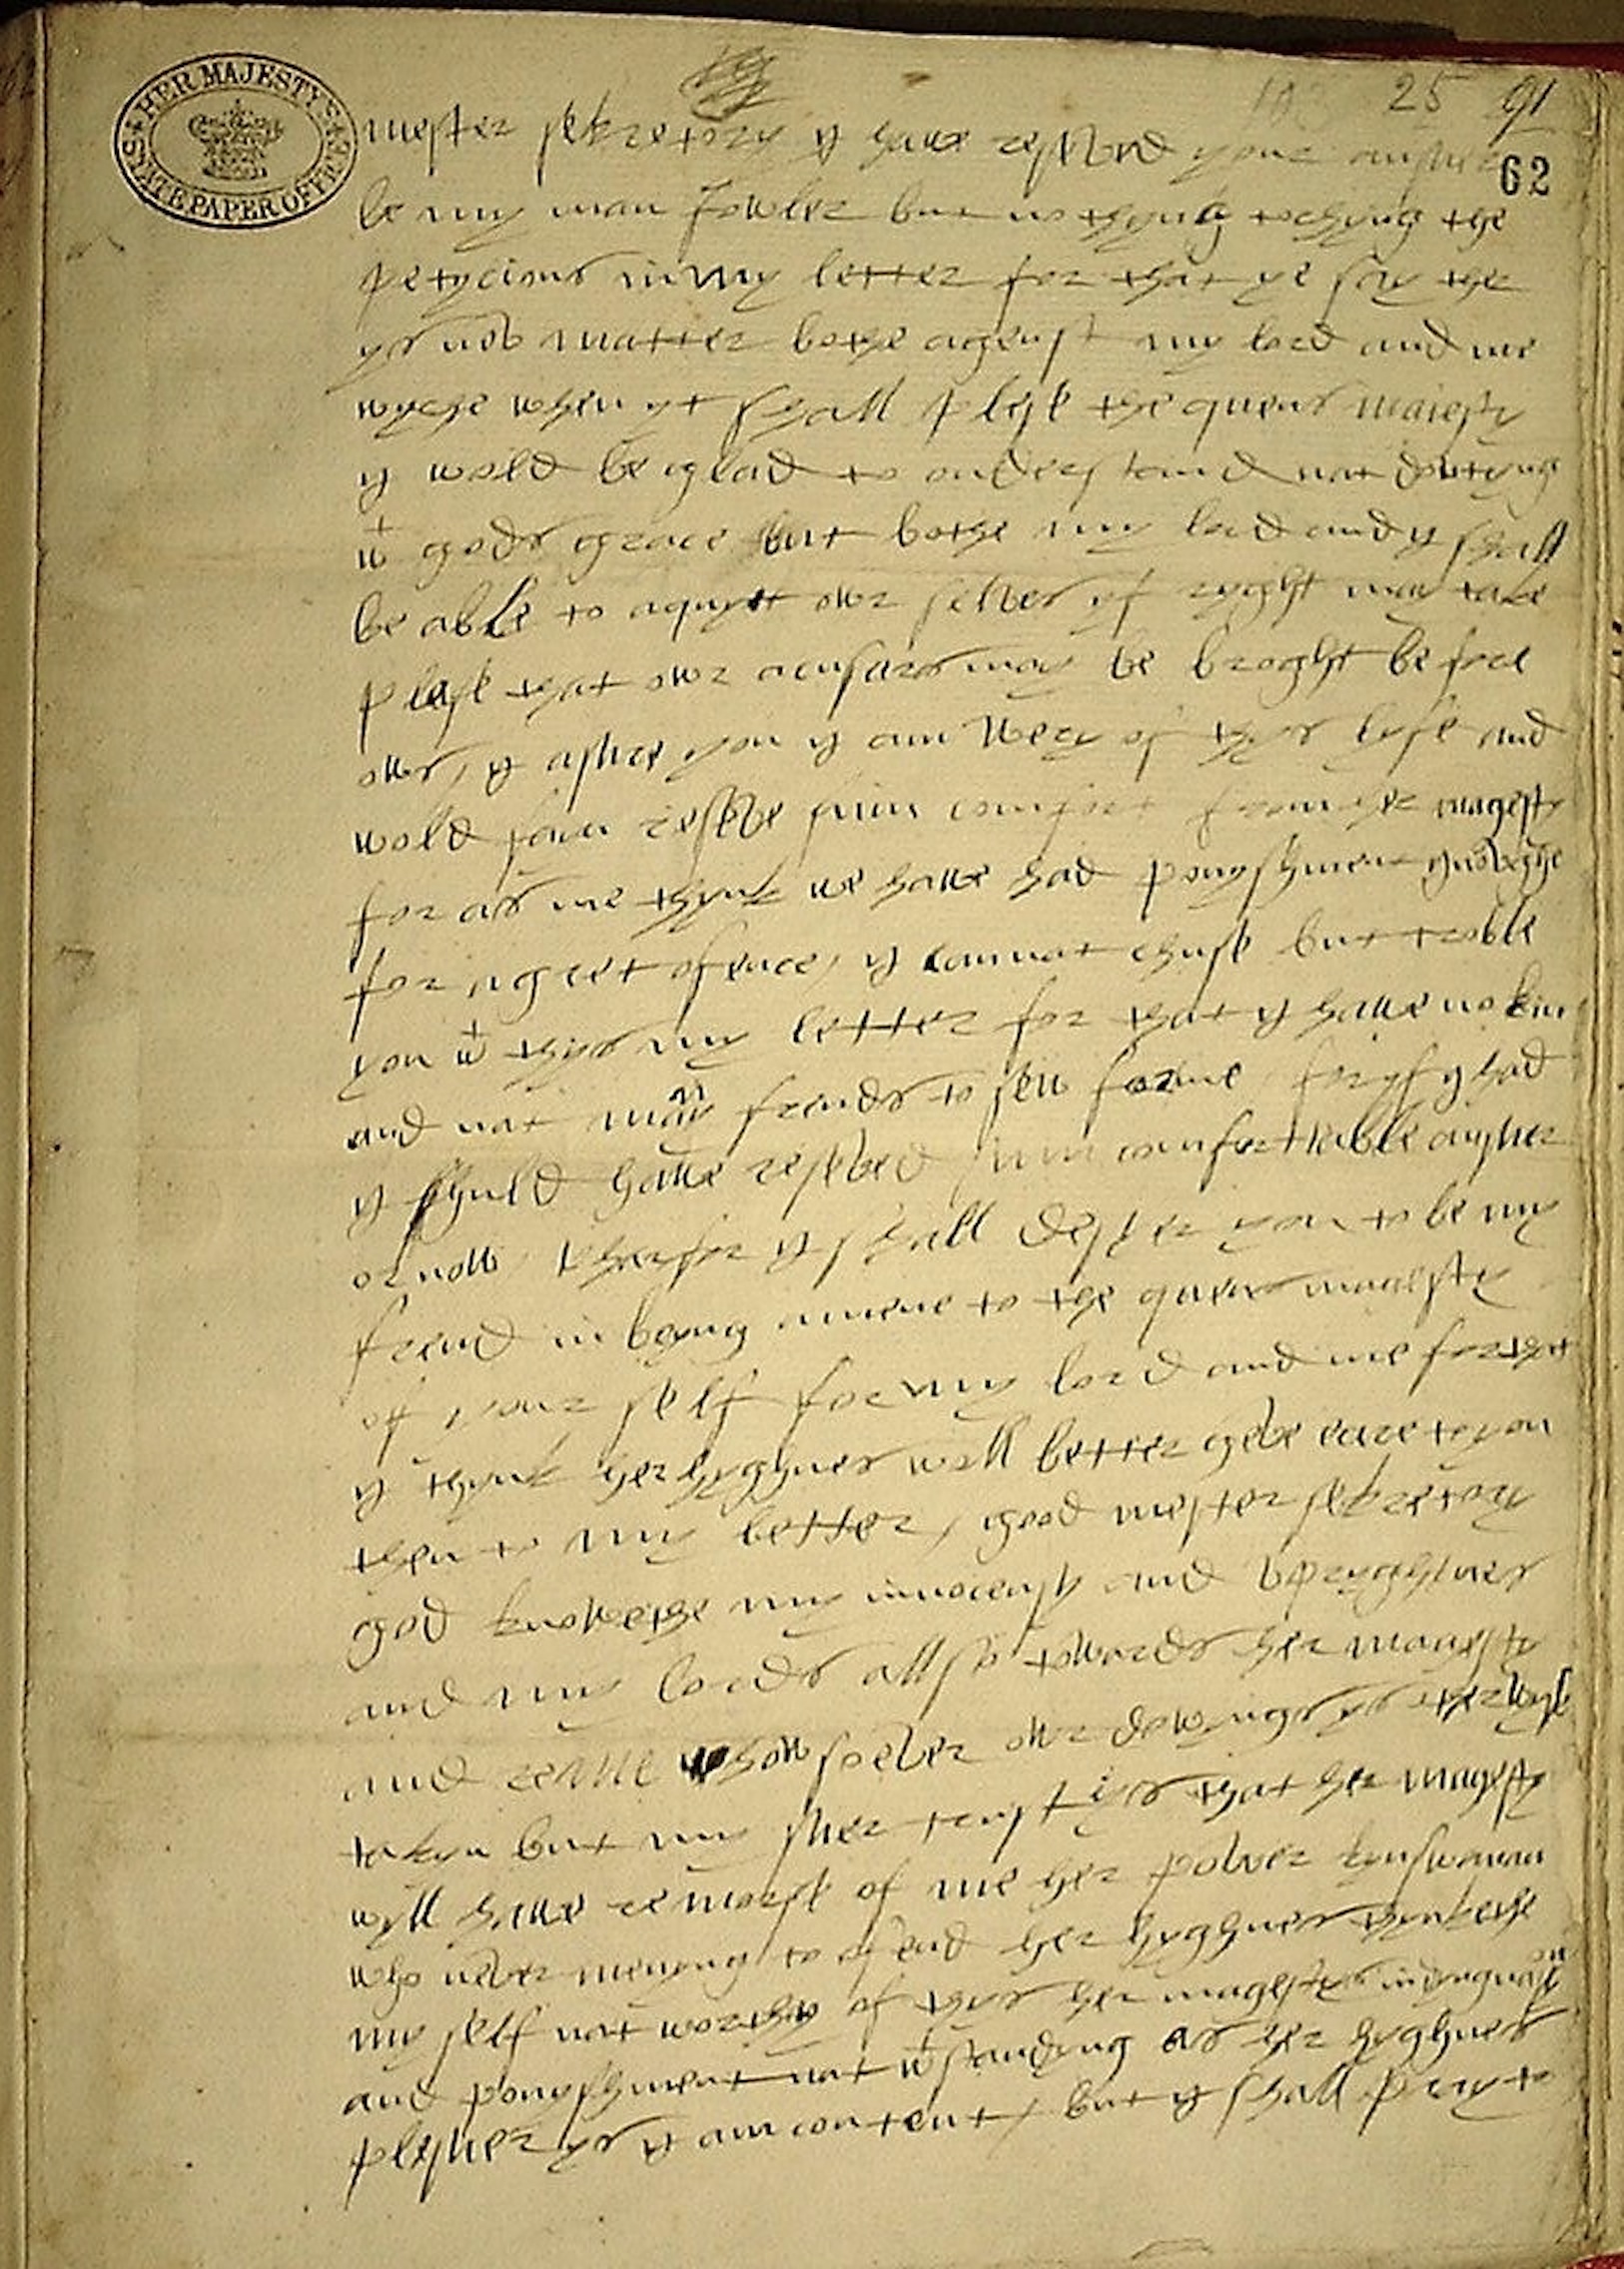 HER MAJESTY'S STATE PAPER OFFICE
25 91
62
mester sekretory y haue reseved your answer
be my man Fowler but no thyng tochyng the
petycions in my letter for that ye say ther
ys now matter bothe agenst my lord and me
wyche when yt shall plese the quens maiesty
y wold be glad to onderstand nat dowtyng
wt gods grace but bothe my lord and y shall
be able to aquytt owr selves yf ryght may take
plase that owr acusars may be broght before
ows, y asure you y am wery of thys lyfe and
wold fain reseve sum comfort from her magesty
for as me thynk we haue had ponyshment ynowghe
for a gret ofence, y cannat chuse but troble
you wt thys my letter for that y haue no kin
and nat many frends to sew for me for yf y had
y shuld haue reseved sum comfortable answer
or now, therfor y shall desyer you to be my
frend in beyng a mene to the quens magesty
of your self for my lord and me for that
y thynk her hyghnes will better geve eare to you
then to my letter, good mester sekretory
god knowethe my innocensy and vpryghtnes
and my lords allso towards her magesty
and realme howsoever owr dowyngs ys otherwyse
takyn but my suer trust ys that her magesty
wyll haue remorse of me her power kynswoman
who never menyng to ofend her hyghnes thynkethe
my self nat worthy of thys her magestys indyngnasyon
and ponyshment nat wtstandyng as her hyghnes
plesuer ys y am content, but y shall pray to